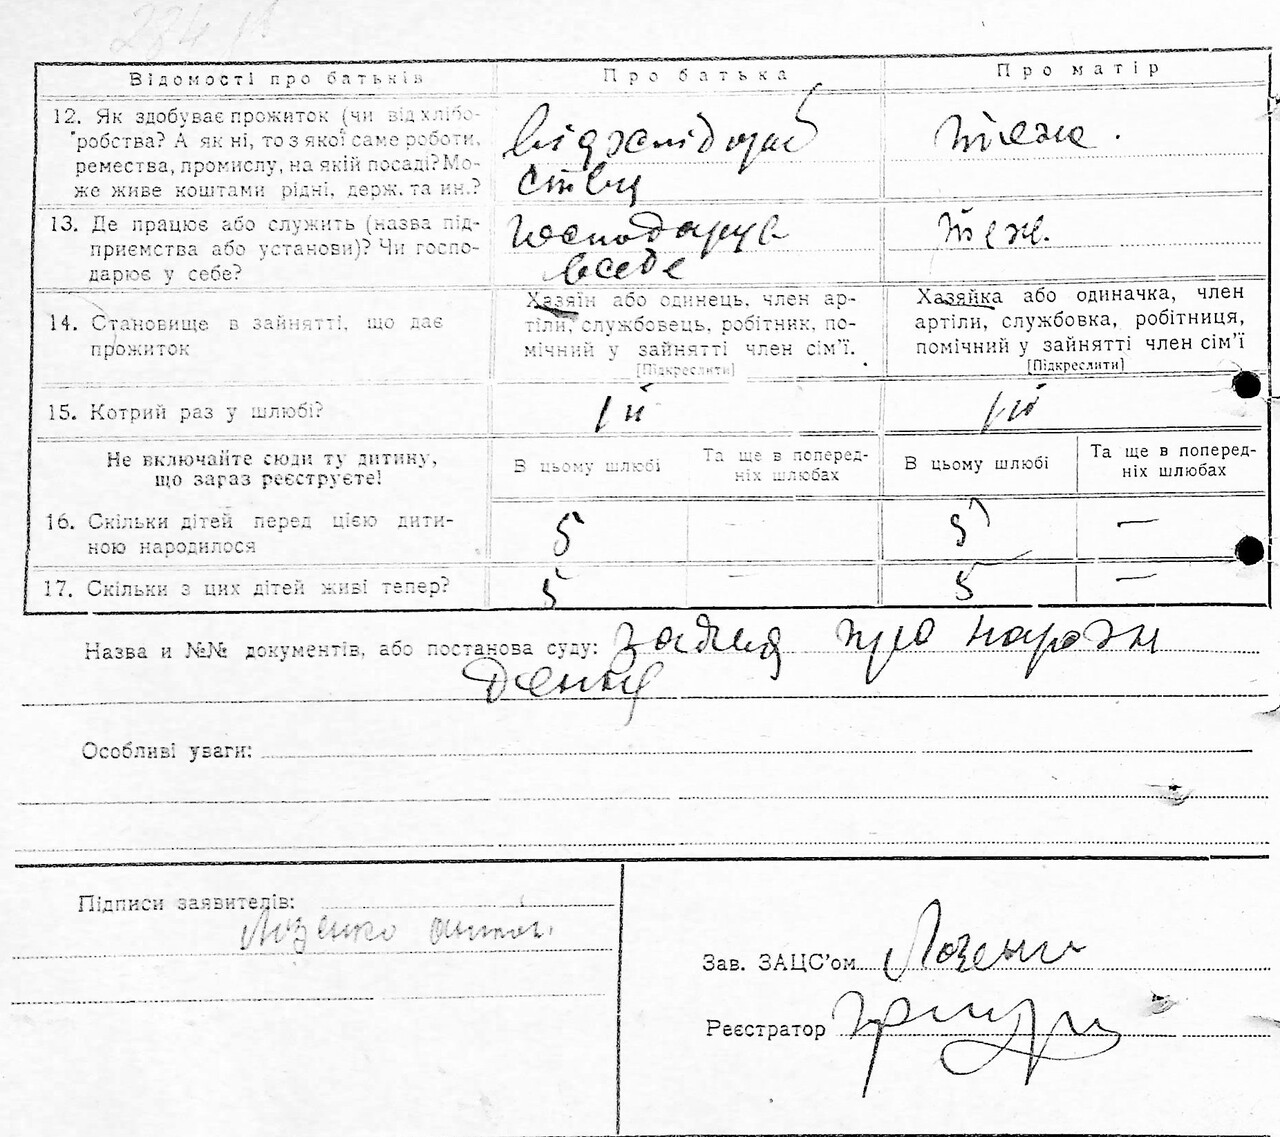 284
Відомості про батьків
Про батька
Про матір
12. Як здобуває прожиток (чи від хлібо-
робства? А як ні, то з якої саме роботи,
ремества, промислу, на якій посаді? Мо-
же живе коштами рідні, держ. та ин.?
від хлібороб
ства
теж.
13. Де працює або служить (назва під-
приємства або установи)? Чи госпо-
дарює у себе?
господарув
в себе
теж.
14. Становище в зайнятті, що дає
прожиток
Хазяїн або одинець, член ар-
тіли, службовець, робітник, по-
мічний у зайнятті член сім'ї.
[Підкреслити]
Хазяйка або одиначка, член
артіли, службовка, робітниця,
помічний у зайнятті член сім'ї
[Підкреслити]
15. Котрий раз у шлюбі?
1й
1-й
Не включайте сюди ту дитину,
що зараз реєструєте!
В цьому шлюбі
Та ще в поперед-
ніх шлюбах
В цьому шлюбі
Та ще в поперед-
ніх шлюбах
16. Скільки дітей перед цією дити-
ною народилося
5
—
5
—
17. Скільки з цих дітей живі тепер?
5
—
5
—
Назва и №№ документів, або постанова суду: заява про народж
дення
Особливі уваги:
Підписи заявителів:
Лозенко
Зав. ЗАЦС'ом Лозенко
Реєстратор